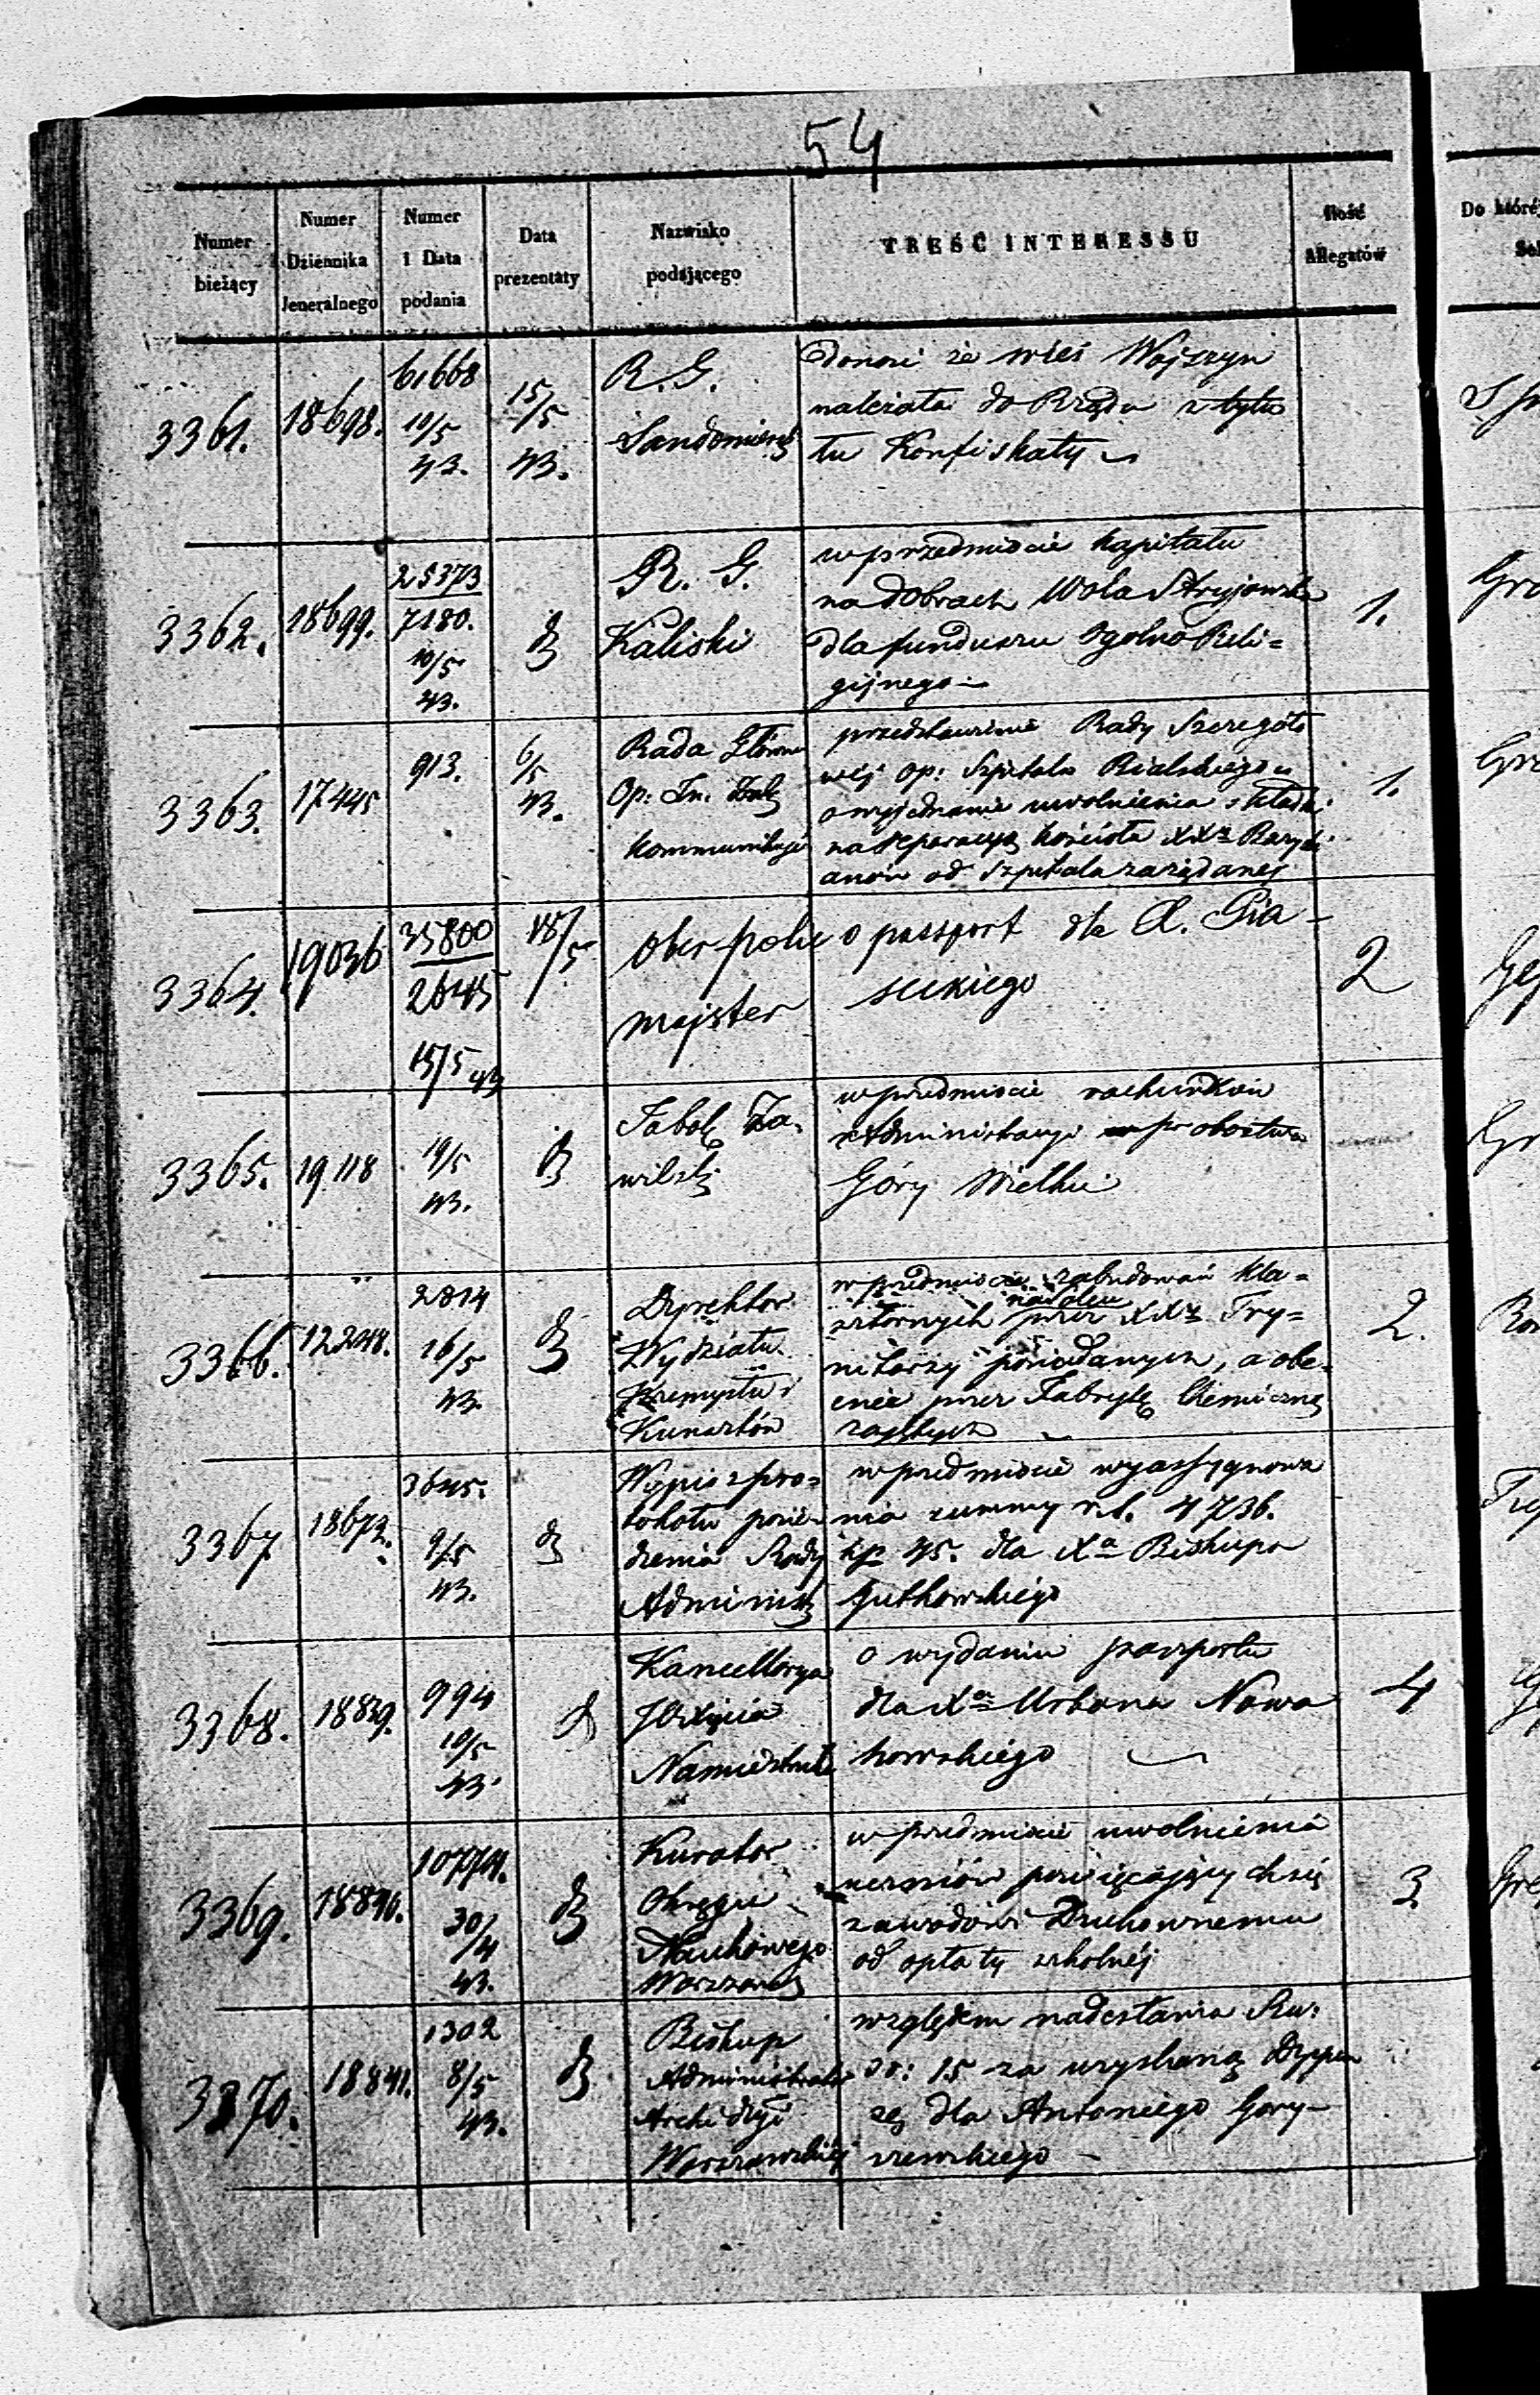 54
Numer bieżący
Numer Dziennika Jeneralnego
Numer i Data podania
Data prezentaty
Nazwisko podającego
TREŚĆ INTERESSU
Ilość Allegatów
Do któréj
3361. 18698. 61668 10/5 43. 15/5 43. R. G.
Sandomiersk
donosi że wieś Wojszyn
należała do Rządu z tytu
łu Konfiskaty
3362. 18699. 25373 7180. 10/5 43. R. G.
Kaliski
w przedmiocie kapitału
na dobrach Wola Stryjowska
dla funduszu Ogolno Reli=
gijnego
1.
3363. 17445 913. 6/5 43. Rada Główna
Op: In: Zakł
kommunikuje
przedstawienie Rady Szczegóło
wéj Op: Szpitala Bialskiego
o wyjednanie uwolnienia składki
na reperacyą kościoła XXz Bazyli
anów od Szpitala zażądanéj
1.
3364. 19036 35800 2645 15/5 43 18/5 Ober polic
majster
o passport dla A. Pia-
seckiego
2
3365. 19118 19/5 43. Jakób Za-
wilski
w przedmiocie rachunków
z Administracyi probostwa
Góry Wielkie
3366. 12248. 2814 16/5 43. Dyrektor
Wydziału
Przemysłu i
Kunsztów
w przedmiocie zabudowań kla=
sztornych przez XXz Try=
nitarzy posiadanych, a obe=
cnie przez Fabrykę Chemiczną
zajętych
2.
3367 18672. 3645. 9/5 43. Wypis z pro=
tokołu posie=
dzenia Rady
Administ
w przedmiocie wyassygnowa
nia summy rs. 4736.
kp 45. dla Xa Biskupa
Gutkowskiego
3368. 18829. 994 10/5 43. Kancellarya
JO Xięcia
Namiestnika
o wydanie paszportu
dla Xa Urbana Nowa
kowskiego
4
3369. 18840. 10774. 30/4 43. Kurator
Okręgu
Naukowego
Warszaws
w przedmiocie uwolnienia
uczniów poświęcających się
zawodowi Duchownemu
od opłaty szkolnéj
3
3370. 18841. 1302 8/5 43. Biskup
Administrator
Archi dyi
Warszawskiéj
względem nadesłania Ru:
sr: 15 za uzyskaną Dyspen
zę dla Antoniego Gory-
szewskiego